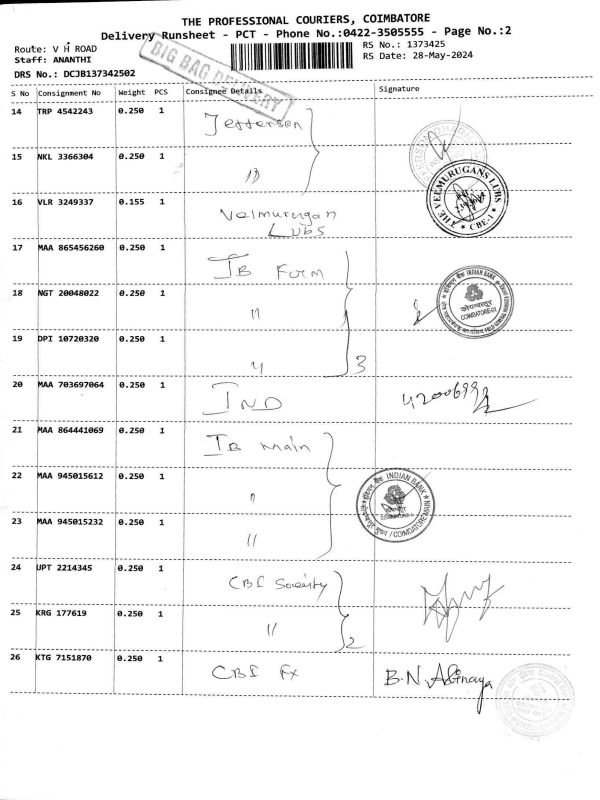 THE PROFESSIONAL COURIERS, COIMBATORE
Delivery Runsheet - PCT - Phone No.:0422-3505555 - Page No.:2
Route: V H ROAD
RS No.: 1373425
Staff: ANANTHI
RS Date: 28-May-2024
DRS No.: DCJB137342502
BIG BAG DELIVERY
S No Consignment No Weight PCS Consignee Details Signature
14 TRP 4542243 0.250 1 Jeffersen
15 NKL 3366304 0.250 1 11
16 VLR 3249337 0.155 1 Velmurugan Lubs
THE VEEMURUGANS LUBS
CBE-1
17 MAA 865456260 0.250 1 IB Form
18 NGT 20048022 0.250 1 11
INDIAN BANK
COIMBATORE-01
19 DPI 10720320 0.250 1 4 3
20 MAA 703697064 0.250 1 IND
21 MAA 864441069 0.250 1 IB main
22 MAA 945015612 0.250 1 "
INDIAN BANK
COIMBATORE MAIN
23 MAA 945015232 0.250 1 11
24 UPT 2214345 0.250 1 CBE Society
25 KRG 177619 0.250 1 11 2
26 KTG 7151870 0.250 1 CBE Fx B.N. Abinaya